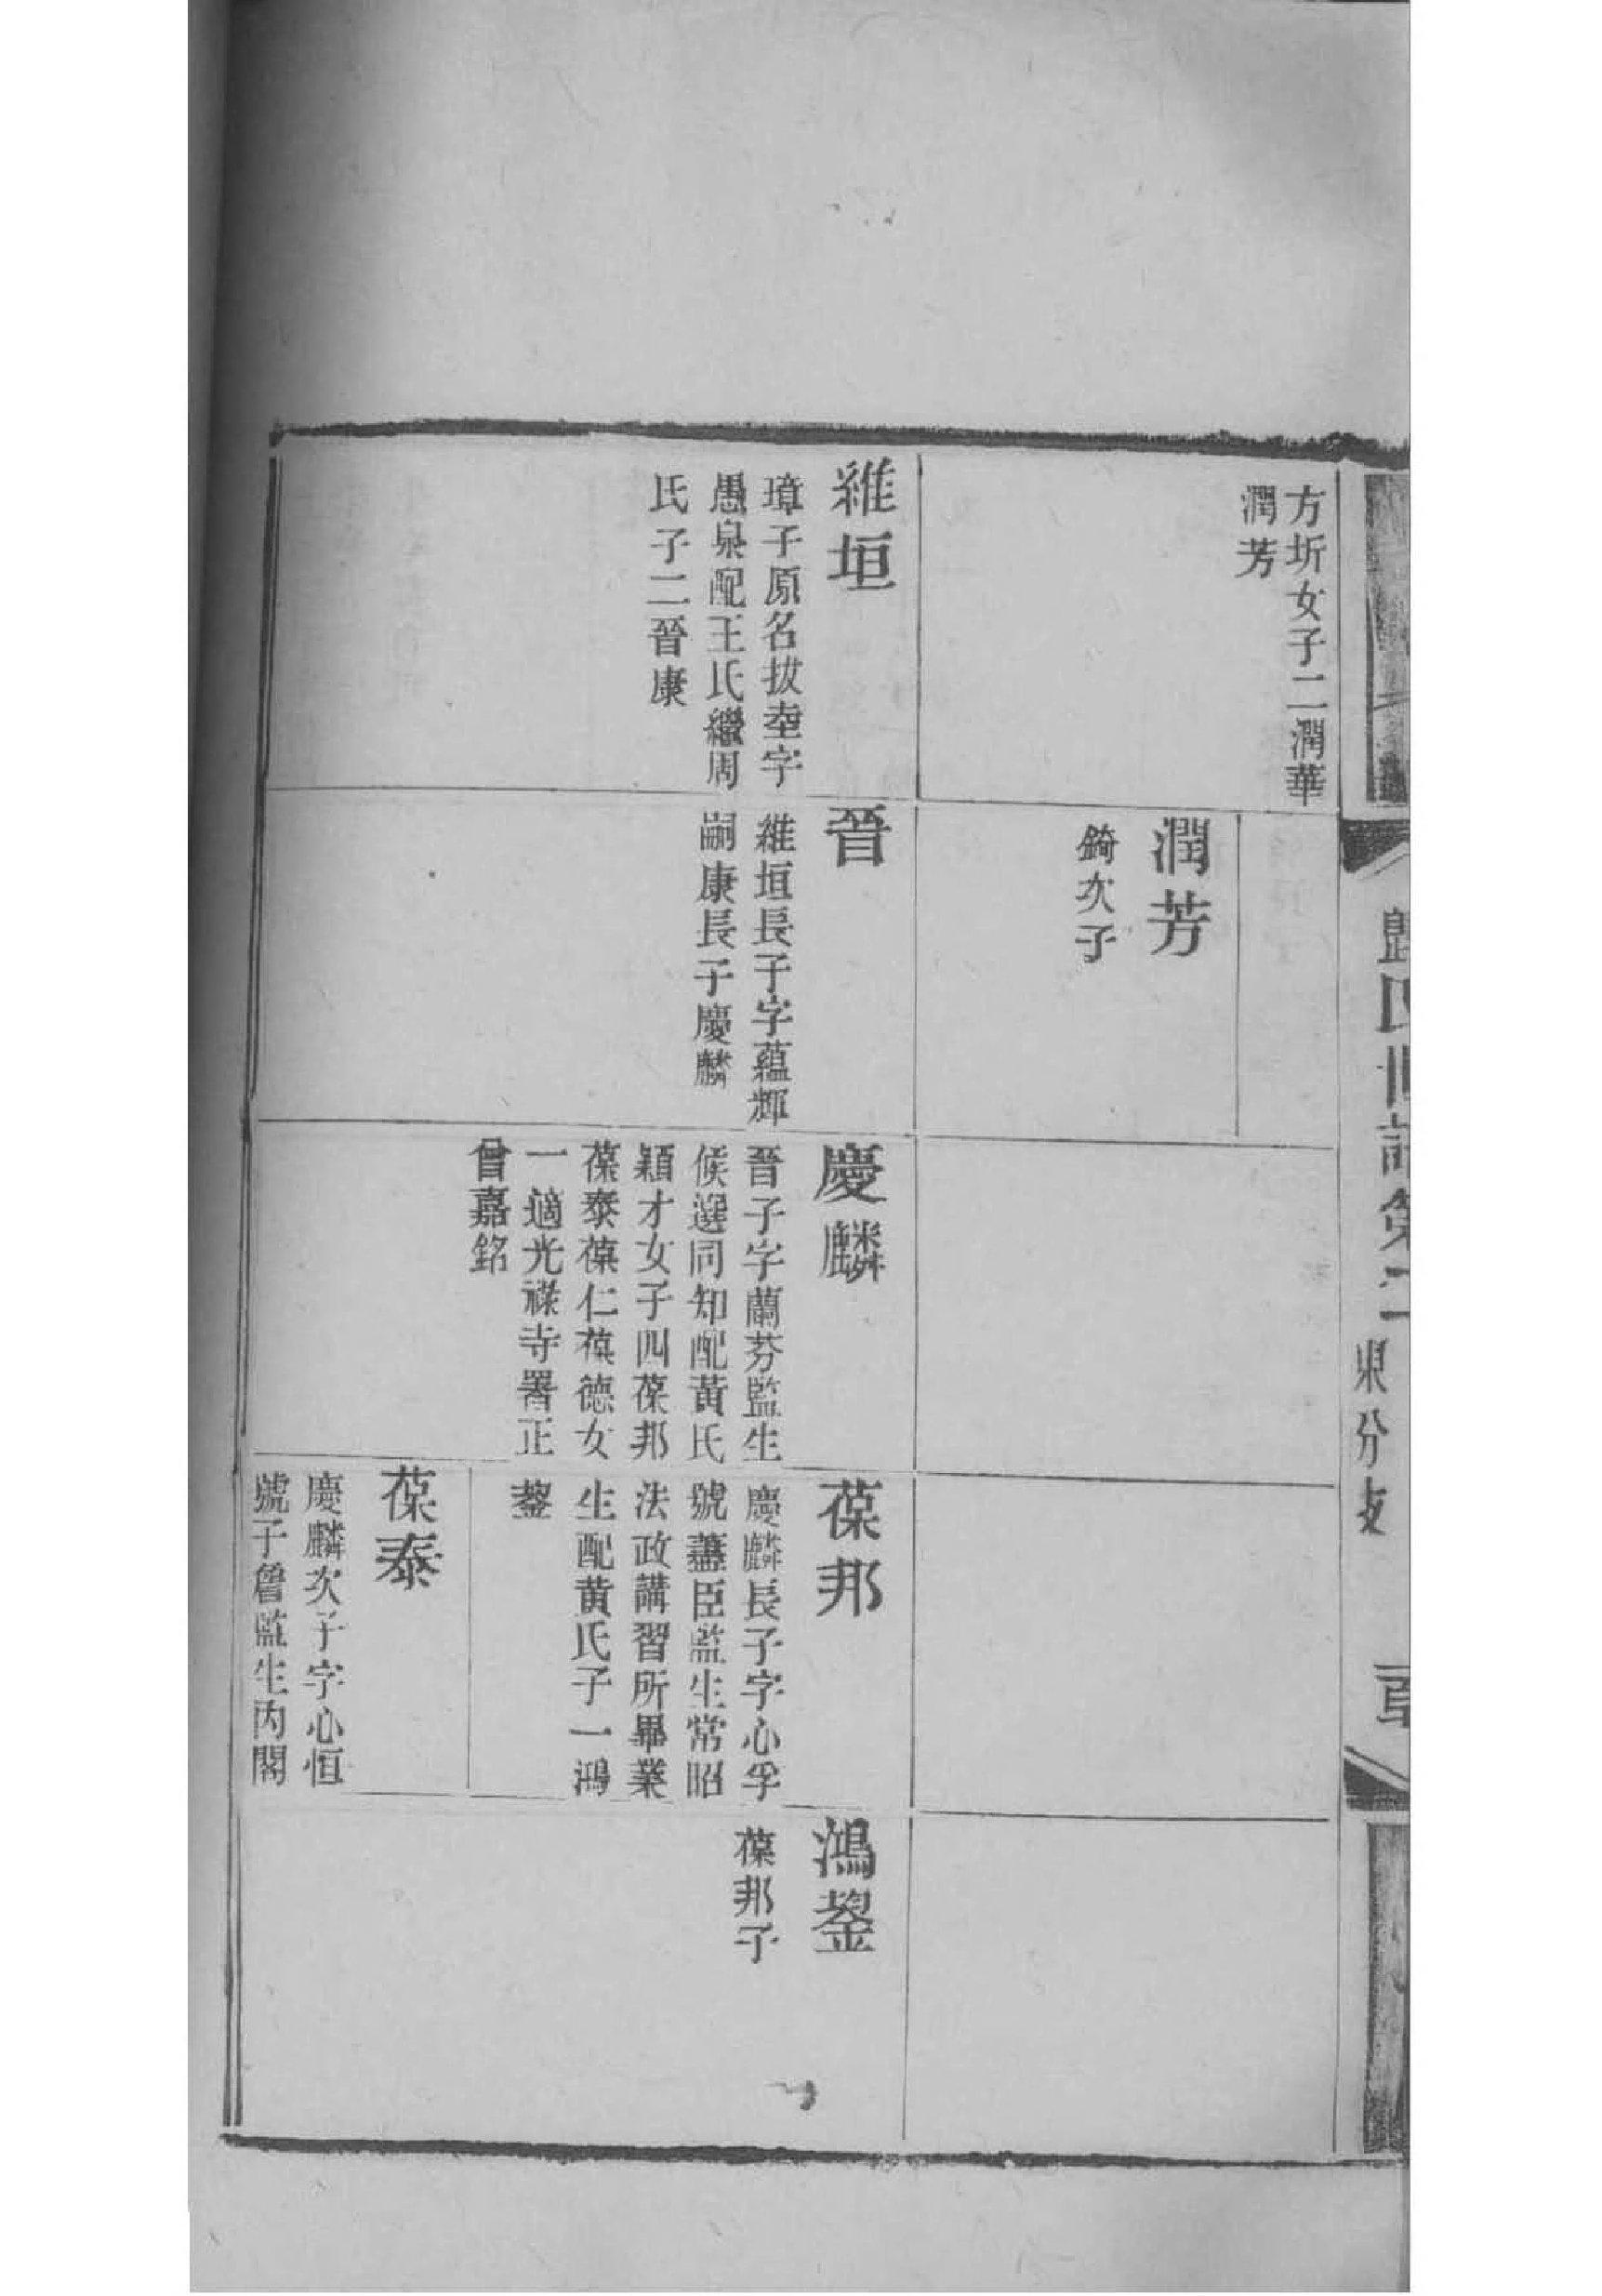 方圻女子二潤華
潤芳
潤芳
錡次子
維垣
璋子原名拔奎字
愚泉配王氏繼周
氏子二晉康
晉
維垣長子字蘊輝
嗣康長子慶麟
慶麟
晉子字蘭芬監生
候選同知配黃氏
穎才女子四葆邦
葆泰葆仁葆德女
一適光祿寺署正
曾嘉銘
葆邦
慶麟長子字心孚
號藎臣監生常昭
法政講習所畢業
生配黃氏子一鴻
鋆
葆泰
慶麟次子字心恒
號子詹監生內閣
鴻鋆
葆邦子
東分支